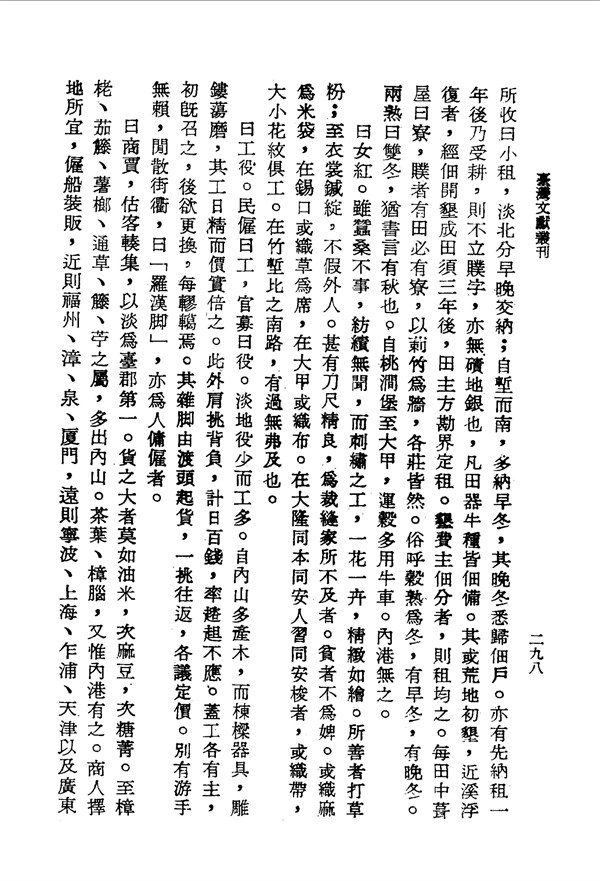 臺灣文獻叢刊
二九八
所收曰小租，淡北分早晚交納；自塹而南，多納早冬，其晚冬悉歸佃戶。亦有先納租一
年後乃受耕，則不立贌字，亦無磧地銀也，凡田器牛種皆佃備。其或荒地初墾，近溪浮
復者，經佃開墾成田須三年後，田主方勘界定租。墾費主佃分者，則租均之。每田中葺
屋曰寮，贌者有田必有寮，以莿竹為牆，各莊皆然。俗呼穀熟為冬，有早冬，有晚冬。
兩熟曰雙冬，猶書言有秋也。自桃澗堡至大甲，運穀多用牛車。內港無之。
曰女紅。雖蠶桑不事，紡績無聞，而刺繡之工，一花一卉，精緻如繪。所善者打草
粉；至衣裳鍼綻，不假外人。甚有刀尺精良，為裁縫家所不及者。貧者不為婢。或織麻
為米袋，在錫口或織草為席，在大甲或織布。在大隆同本同安人習同安梭者，或織帶，
大小花紋俱工。在竹塹比之南路，有過無弗及也。
曰工役。民僱曰工，官募曰役。淡地役少而工多。自內山多產木，而棟樑器具，雕
鏤蕩磨，其工日精而價實倍之。此外肩挑背負，計日百錢，率趦趄不應。蓋工各有主，
初既召之，後欲更換，每轇轕焉。其雜腳由渡頭起貨，一挑往返，各議定價。別有游手
無賴，閒散街衢，曰「羅漢腳」，亦為人傭僱者。
曰商賈，估客輳集，以淡為臺郡第一。貨之大者莫如油米，次麻豆，次糖菁。至樟
栳、茄籐、薯榔、通草、籐、苧之屬，多出內山。茶葉、樟腦，又惟內港有之。商人擇
地所宜，僱船裝販，近則福州、漳、泉、廈門，遠則寧波、上海、乍浦、天津以及廣東